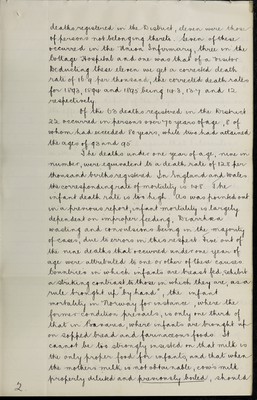 deaths registered in the District, eleven were those
of persons not belonging thereto. Seven of these
occurred in the Union Infirmary, three in the
Cottage Hospital and one was that of a Visitor
Deducting these eleven we get a corrected death
rate of per thousand, the corrected death rates
for 1893, 1894 and 1895 being and 12
respectively.
Of the deaths registered in the District
22 occurred in persons over 70 years of age, 8 of
whom had exceeded 80 years, while two had attained
the ages of and
The deaths under one year of age, nine in
number, were equivalent to a death rate of 128 per
thousand births registered. In England and Wales
the corresponding rate of mortality is The
infant death rate is too high. As was pointed out
in a previous report, infant mortality is largely
dependent on improper feeding, Diarrhœa
wasting and convulsions being in the majority
of cases, due to errors in this respect. Five out of
the nine deaths that occurred under one year of
age were attributed to one or other of these causes
Countries in which infants are breast fed, exhibit
a striking contrast to those in which they are, as a
rule brought up "by hand", the infant
mortality in Norway for instance, where the
former condition prevails, is only one third of
that in Bavaria, where infants are brought up
on sopped bread and farinaceous foods. It
cannot be too strongly insisted on that milk is
the only proper food for infants, and that when
the mothers milk is not obtainable, cow's milk
properly diluted and previously boiled, should
2